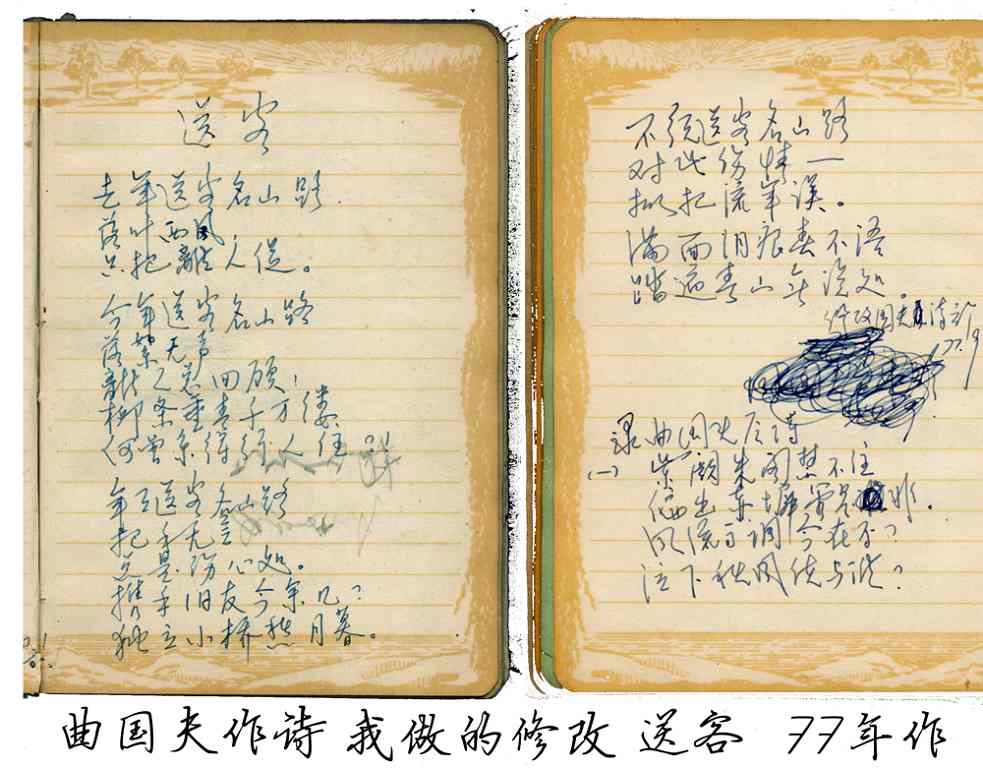 送客
去年送客名山路.
落叶西风
只把离人促。
今年送客名山路
落絮无声
离人莫回顾!
柳条垂青千万缕
何曾系得行人住
年年送客名山路
把手无言
总是伤心处。
携手旧友今余几?
独立小桥愁月暮。
不须送客名山路
对此伤情一
枇杷流年误。
满面泪痕春不语
踏遍青山无觅处。
修改国夫诗
77.9
录曲国夫原诗
(一) 紫阙朱阁禁不住
今在否?
曲国夫作诗 我做的修改 送客 77年作